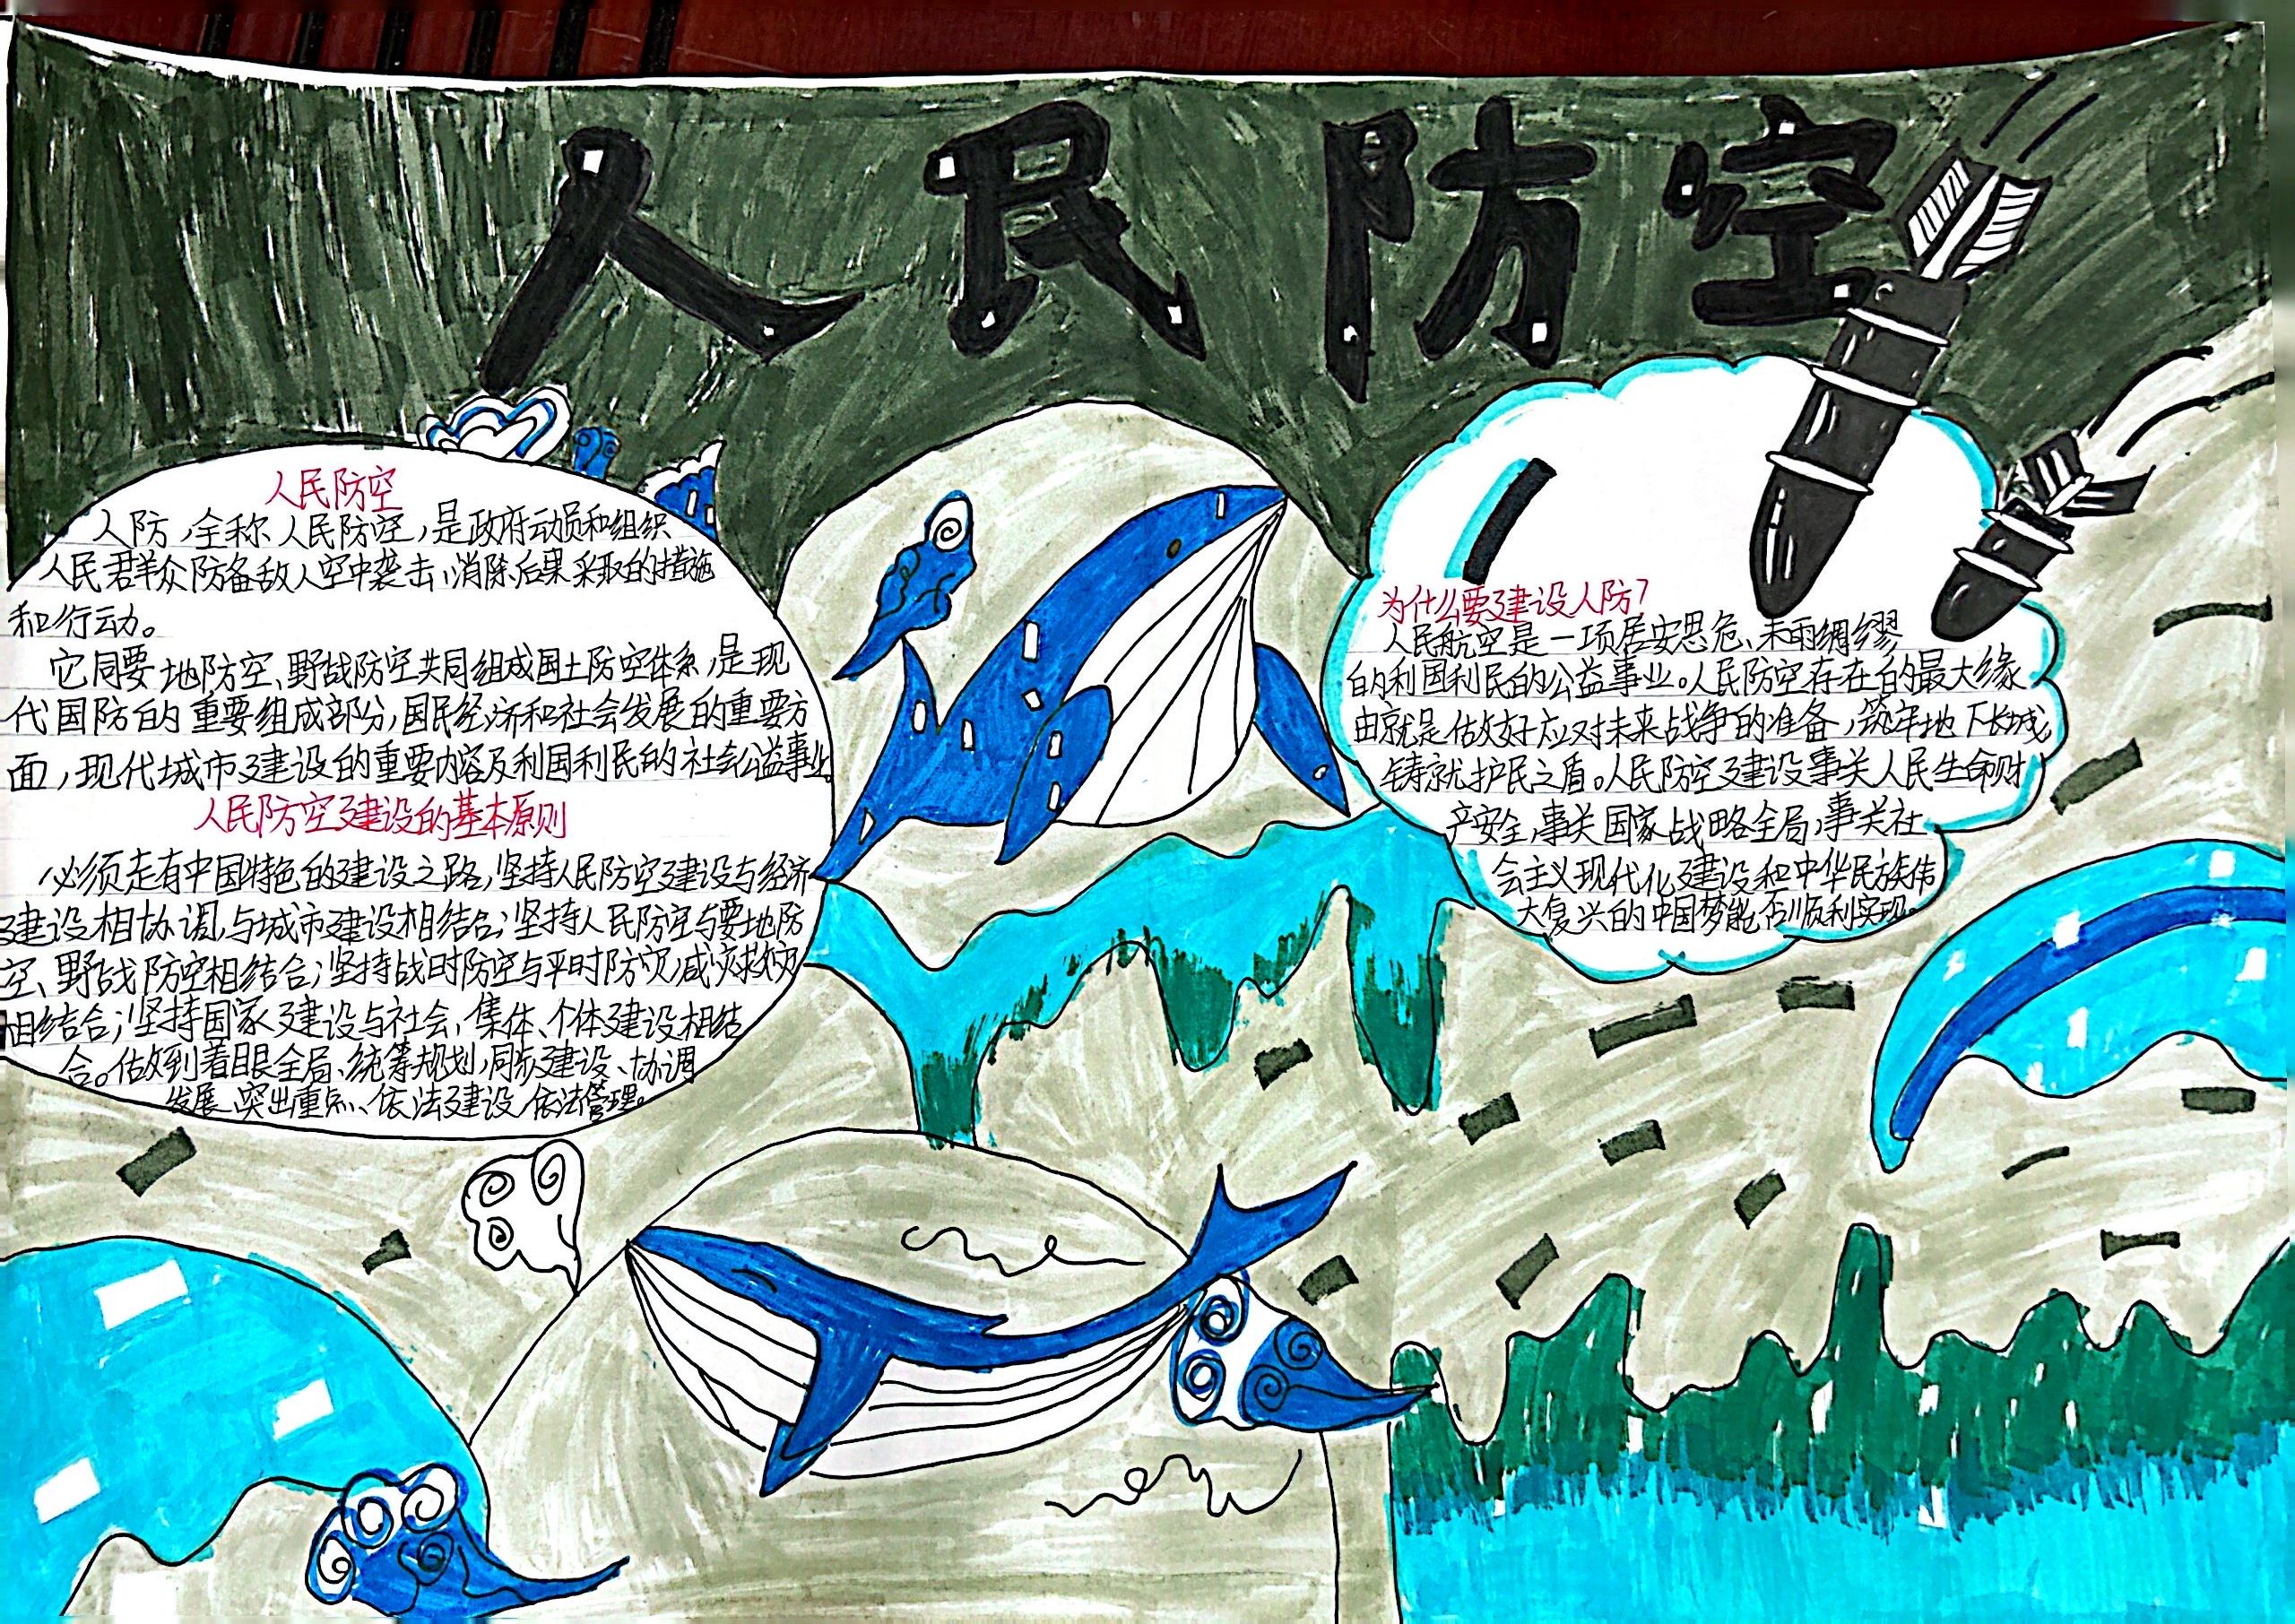 人民防空
人民防空
人防,全称人民防空,是政府动员和组织
人民君羊众防备敌人空中袭击、消除后果采取的措施
和行动。
它同要地防空、野战防空共同组成国土防空体系,是现
代国防的重要组成部分,国民经济和社会发展的重要方
面,现代城市建设的重要内容及利国利民的社会公益事业。
人民防空建设的基本原则
必须走有中国特色的建设之路,坚持人民防空建设与经济
建设相协调,与城市建设相结合;坚持人民防空与要地防
空、野战防空相结合;坚持战时防空与平时防灾,减灾救灾
相结合;坚持国家建设与社会,集体、个体建设相结
合。做到着眼全局、统筹规划,同步建设、协调
发展、突出重点、依法建设,依法管理。
为什么要建设人防?
人民航空是一项居安思危、未雨绸缪
的利国利民的公益事业。人民防空存在的最大缘
由就是做好应对未来战争的准备,筑牢地下长城,
铸就护民之盾。人民防空建设事关人民生命财
产安全,事关国家战略全局,事关社
会主义现代化建设和中华民族伟
大复兴的中国梦能否顺利实现。